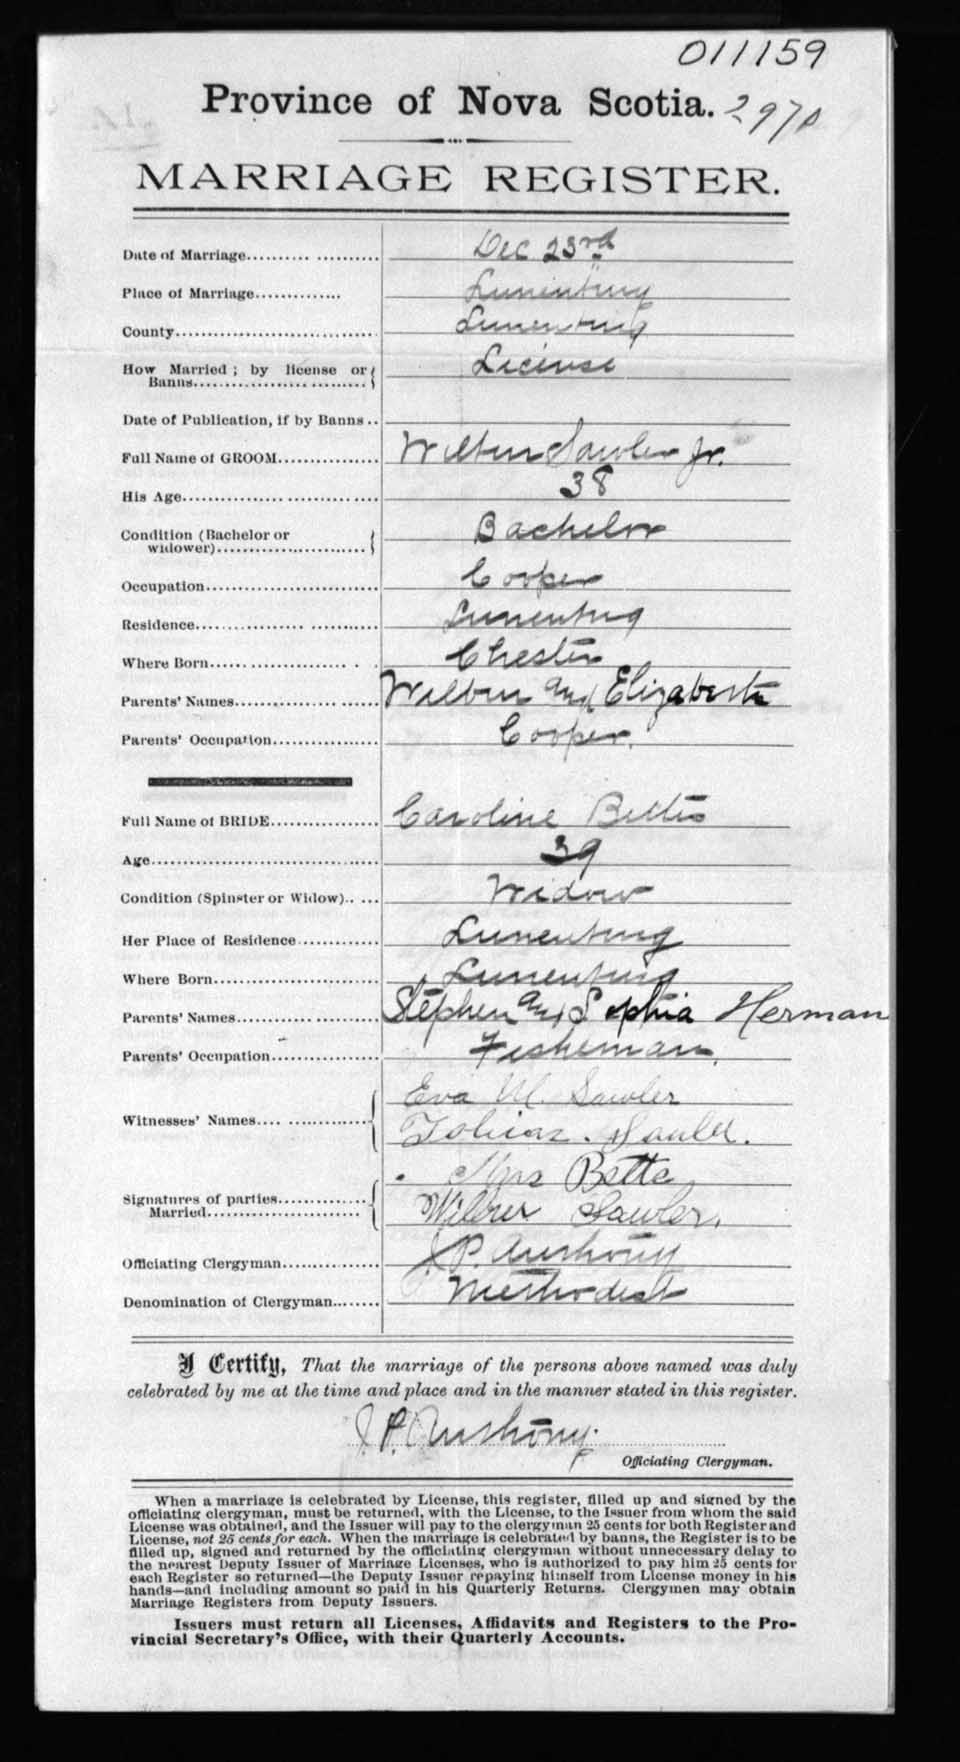 011159
Province of Nova Scotia. 297
MARRIAGE REGISTER.
Date of Marriage.................... Dec 23rd
Place of Marriage.............. Lunenburg
County.............................. Lunenburg
How Married ; by license or License
Banns..............................
Date of Publication, if by Banns ..
Full Name of GROOM................ Wilbur Sawler Jr.
His Age.............................. 38
Condition (Bachelor or Bachelor
widower)..........................
Occupation............................ Cooper
Residence............................ Lunenburg
Where Born.......................... Chester
Parents' Names...................... Wilbur and Elizabeth
Parents' Occupation................. Cooper.
Full Name of BRIDE................. Caroline Betts
Age.................................... 39
Condition (Spinster or Widow)..... Widow
Her Place of Residence............. Lunenburg
Where Born.......................... Lunenburg
Parents' Names...................... Stephen and Sophia Herman
Parents' Occupation................. Fisherman.
Eva M. Sawler
Witnesses' Names....................
Tobias. Sauler.
Mrs Betts
Signatures of parties..............
Married........................... Wilbur Sawler.
Officiating Clergyman................ J. P. Anthony
Denomination of Clergyman........ Methodist
I Certify, That the marriage of the persons above named was duly
celebrated by me at the time and place and in the manner stated in this register.
J. P. Anthony.
Officiating Clergyman.
When a marriage is celebrated by License, this register, filled up and signed by the
officiating clergyman, must be returned, with the License, to the Issuer from whom the said
License was obtained, and the Issuer will pay to the clergyman 25 cents for both Register and
License, not 25 cents for each. When the marriage is celebrated by banns, the Register is to be
filled up, signed and returned by the officiating clergyman without unnecessary delay to
the nearest Deputy Issuer of Marriage Licenses, who is authorized to pay him 25 cents for
each Register so returned—the Deputy Issuer repaying himself from License money in his
hands—and including amount so paid in his Quarterly Returns. Clergymen may obtain
Marriage Registers from Deputy Issuers.
Issuers must return all Licenses, Affidavits and Registers to the Pro-
vincial Secretary's Office, with their Quarterly Accounts.